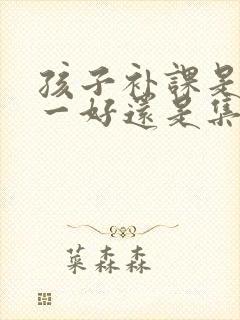 孩子补課是
一好還是集
菜森森